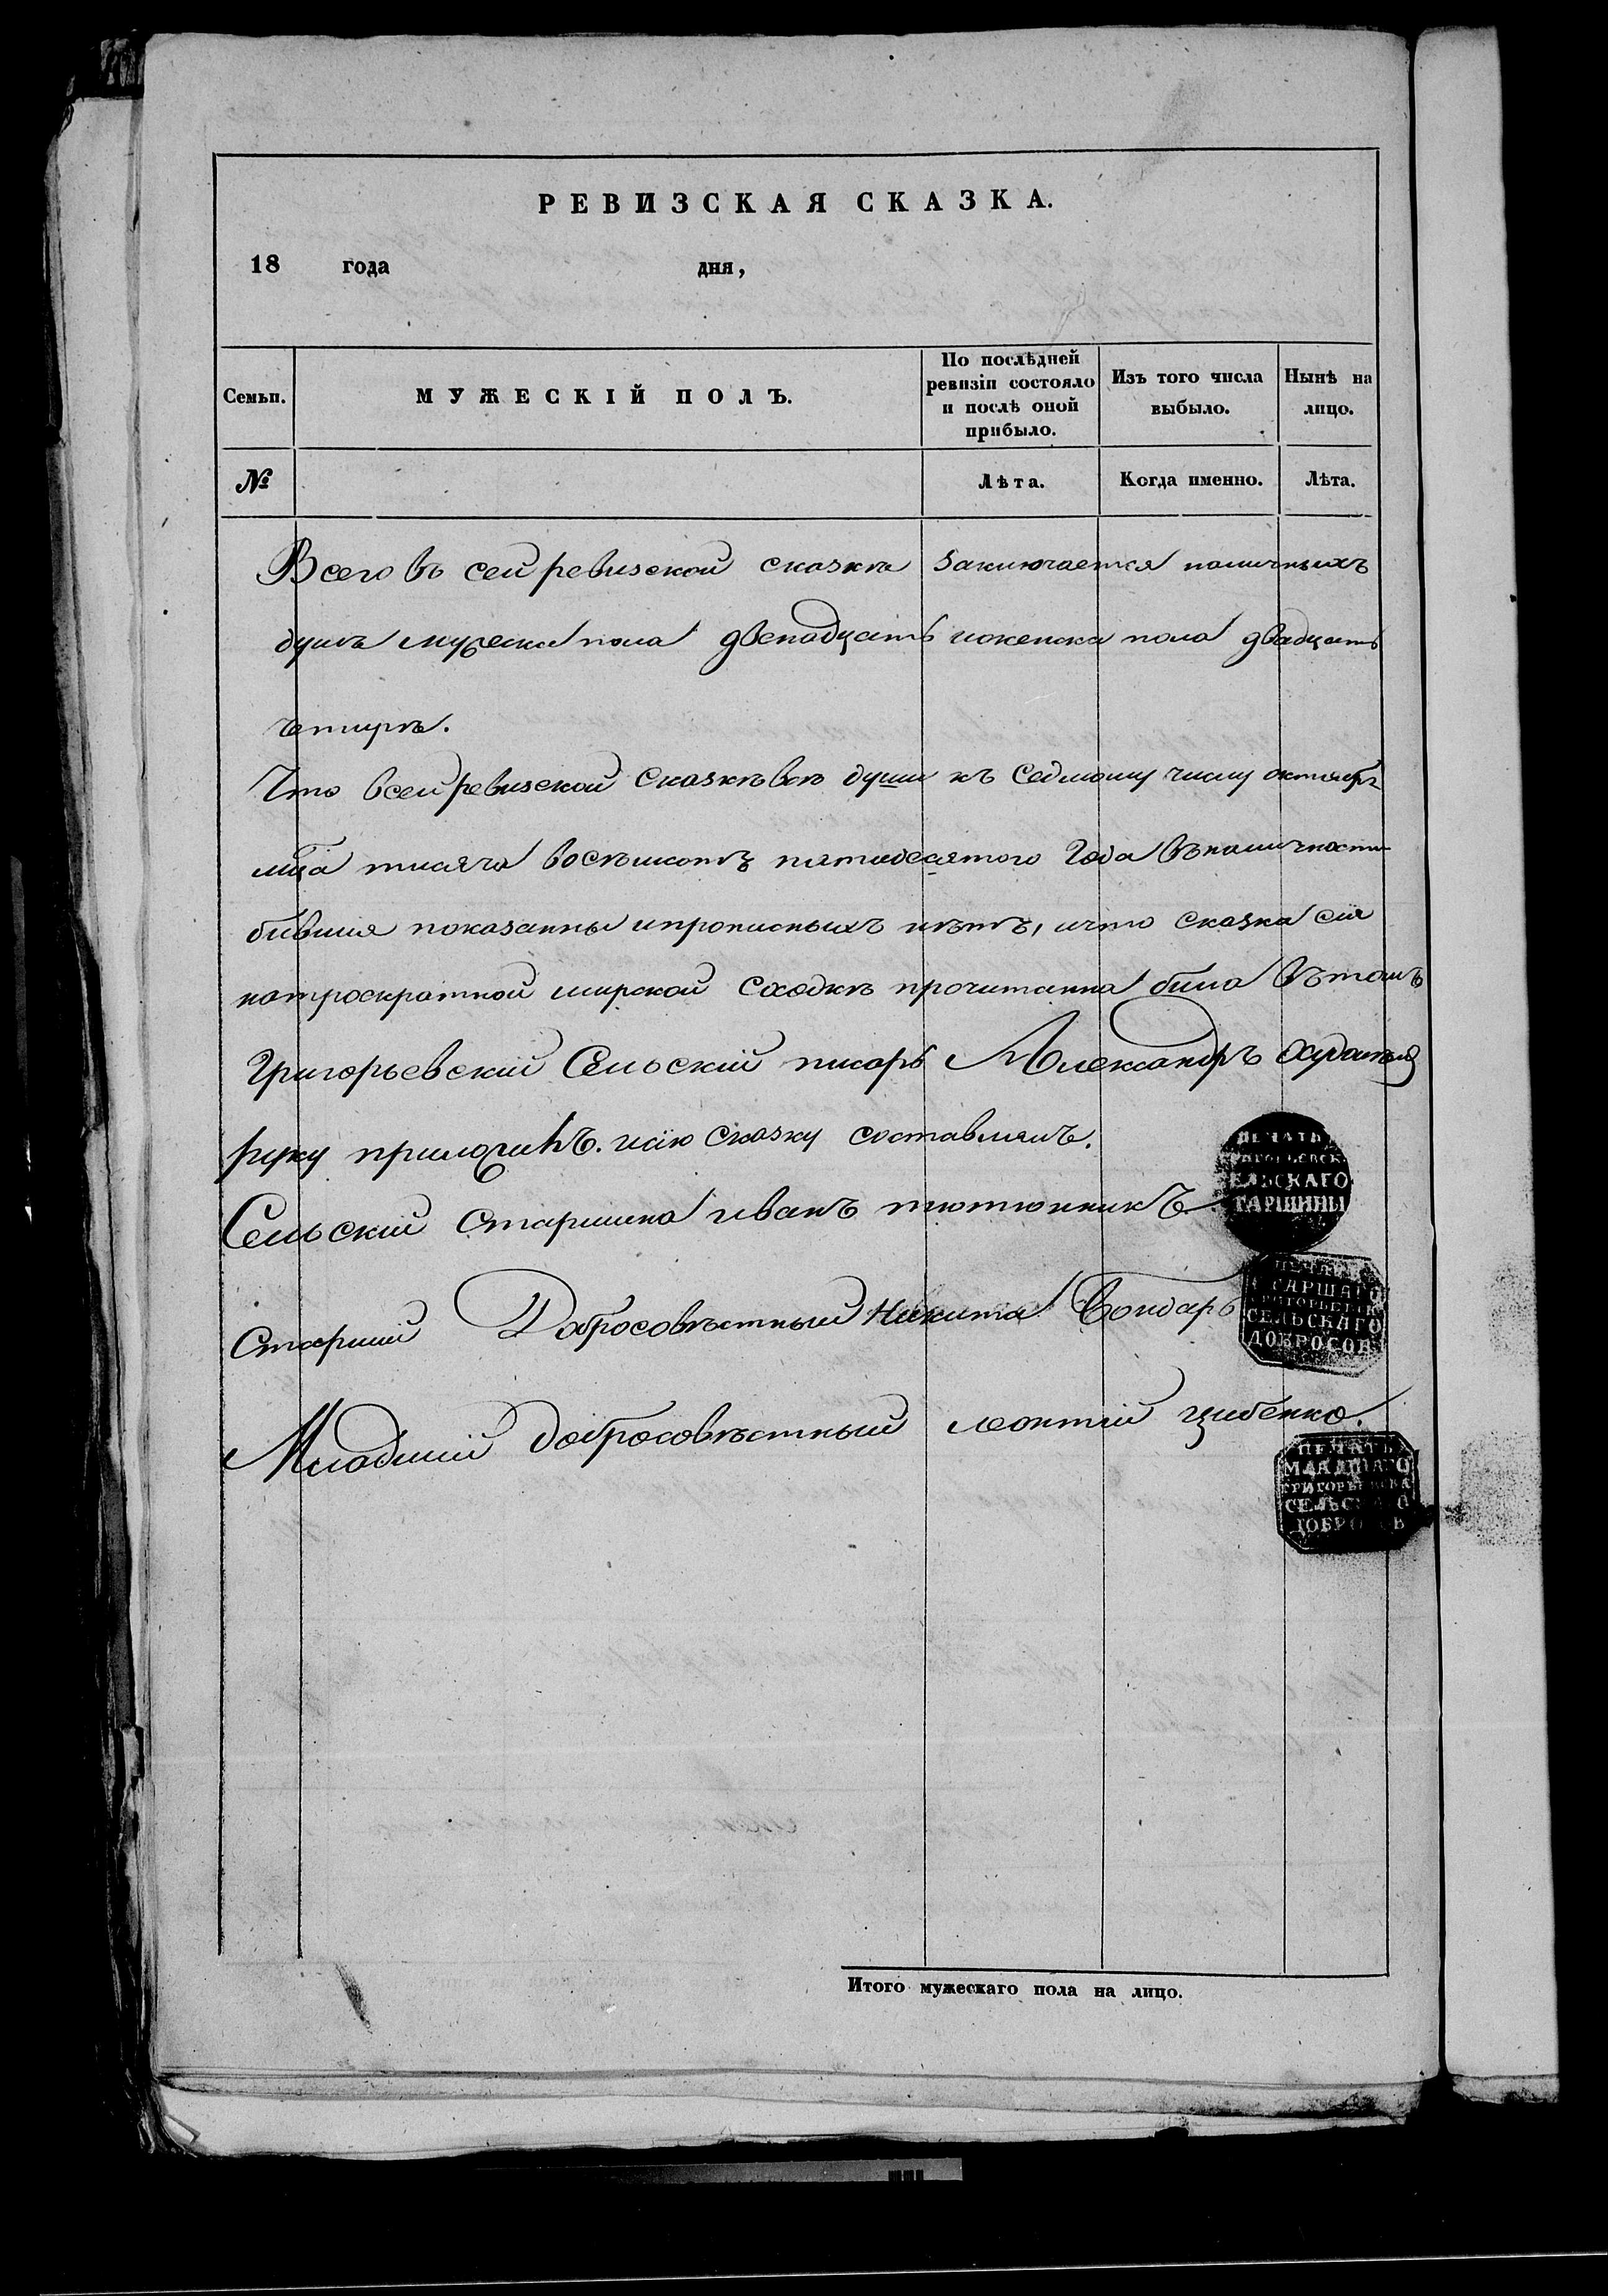 РЕВИЗСКАЯ СКАЗКА.
18 года дня,
Семьи.
МУЖЕСКІЙ ПОЛЪ.
По послѣдней ревизіи состояло и послѣ оной прибыло.
Изъ того числа выбыло.
Нынѣ на лицо.
№
Лѣта.
Когда именно.
Лѣта.
Всего въ сей ревизской сказкѣ заключается наличныхъ
душъ мужеска пола двенадцать иженска пола двадцать
четирѣ.
Что всей ревизской сказкѣ всѣ души къ седмому числу октябр
мца тисяча восѣмсотъ пятидесятого Года въналичности
бившия показанны ипрописныхъ нѣтъ, ичто сказка сія
натроекратной мирской сходкѣ прочитанна била вътомъ
Григорьевскій Сельскій писарь Александръ
руку приложилъ. исїю сказку составлялъ.
Сельскій Старшина иванъ тютюнникъ
Старшій Добросовѣстный Никита Бондарь
Младшій добросовѣстный леонтій цибенко.
ПЕЧАТЬ
ЕЛЬСКАГО
ТАРШИНЫ
ПЕЧАТЬ
СТАРШАГО
СЕЛЬСКАГО
ДОБРОСОВ
ПЕЧАТЬ
МЛАДШАГО
ГРИГОРЬЕВСКА
Итого мужескаго пола на лицо.